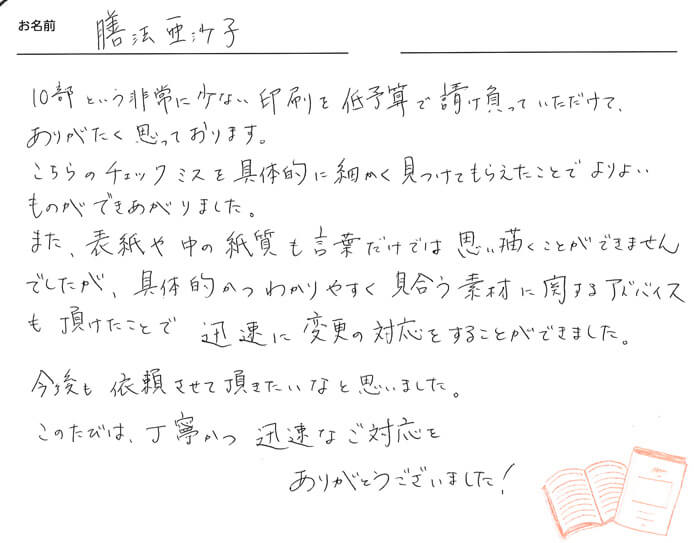 お名前 膳法亜沙子
10部という非常に少ない印刷を低予算で請け負っていただけて、
ありがたく思っております。
こちらのチェックミスを具体的に細かく見つけてもらえたことでよりよい
ものができあがりました。
また、表紙や中の紙質も言葉だけでは思い描くことができません
でしたが、具体的かつわかりやすく見合う素材に関するアドバイス
も頂けたことで迅速に変更の対応をすることができました。
今後も依頼させて頂きたいなと思いました。
このたびは、丁寧かつ迅速なご対応を
ありがとうございました!